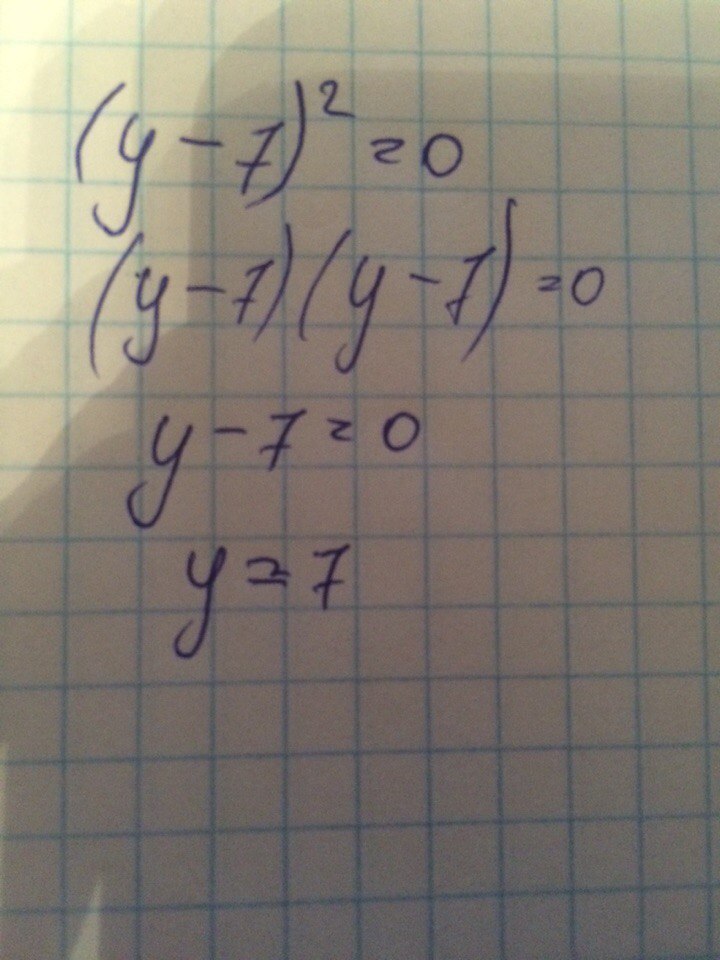 (y-7)² = 0
(y-7)(y-7) = 0
y-7 = 0
y = 7